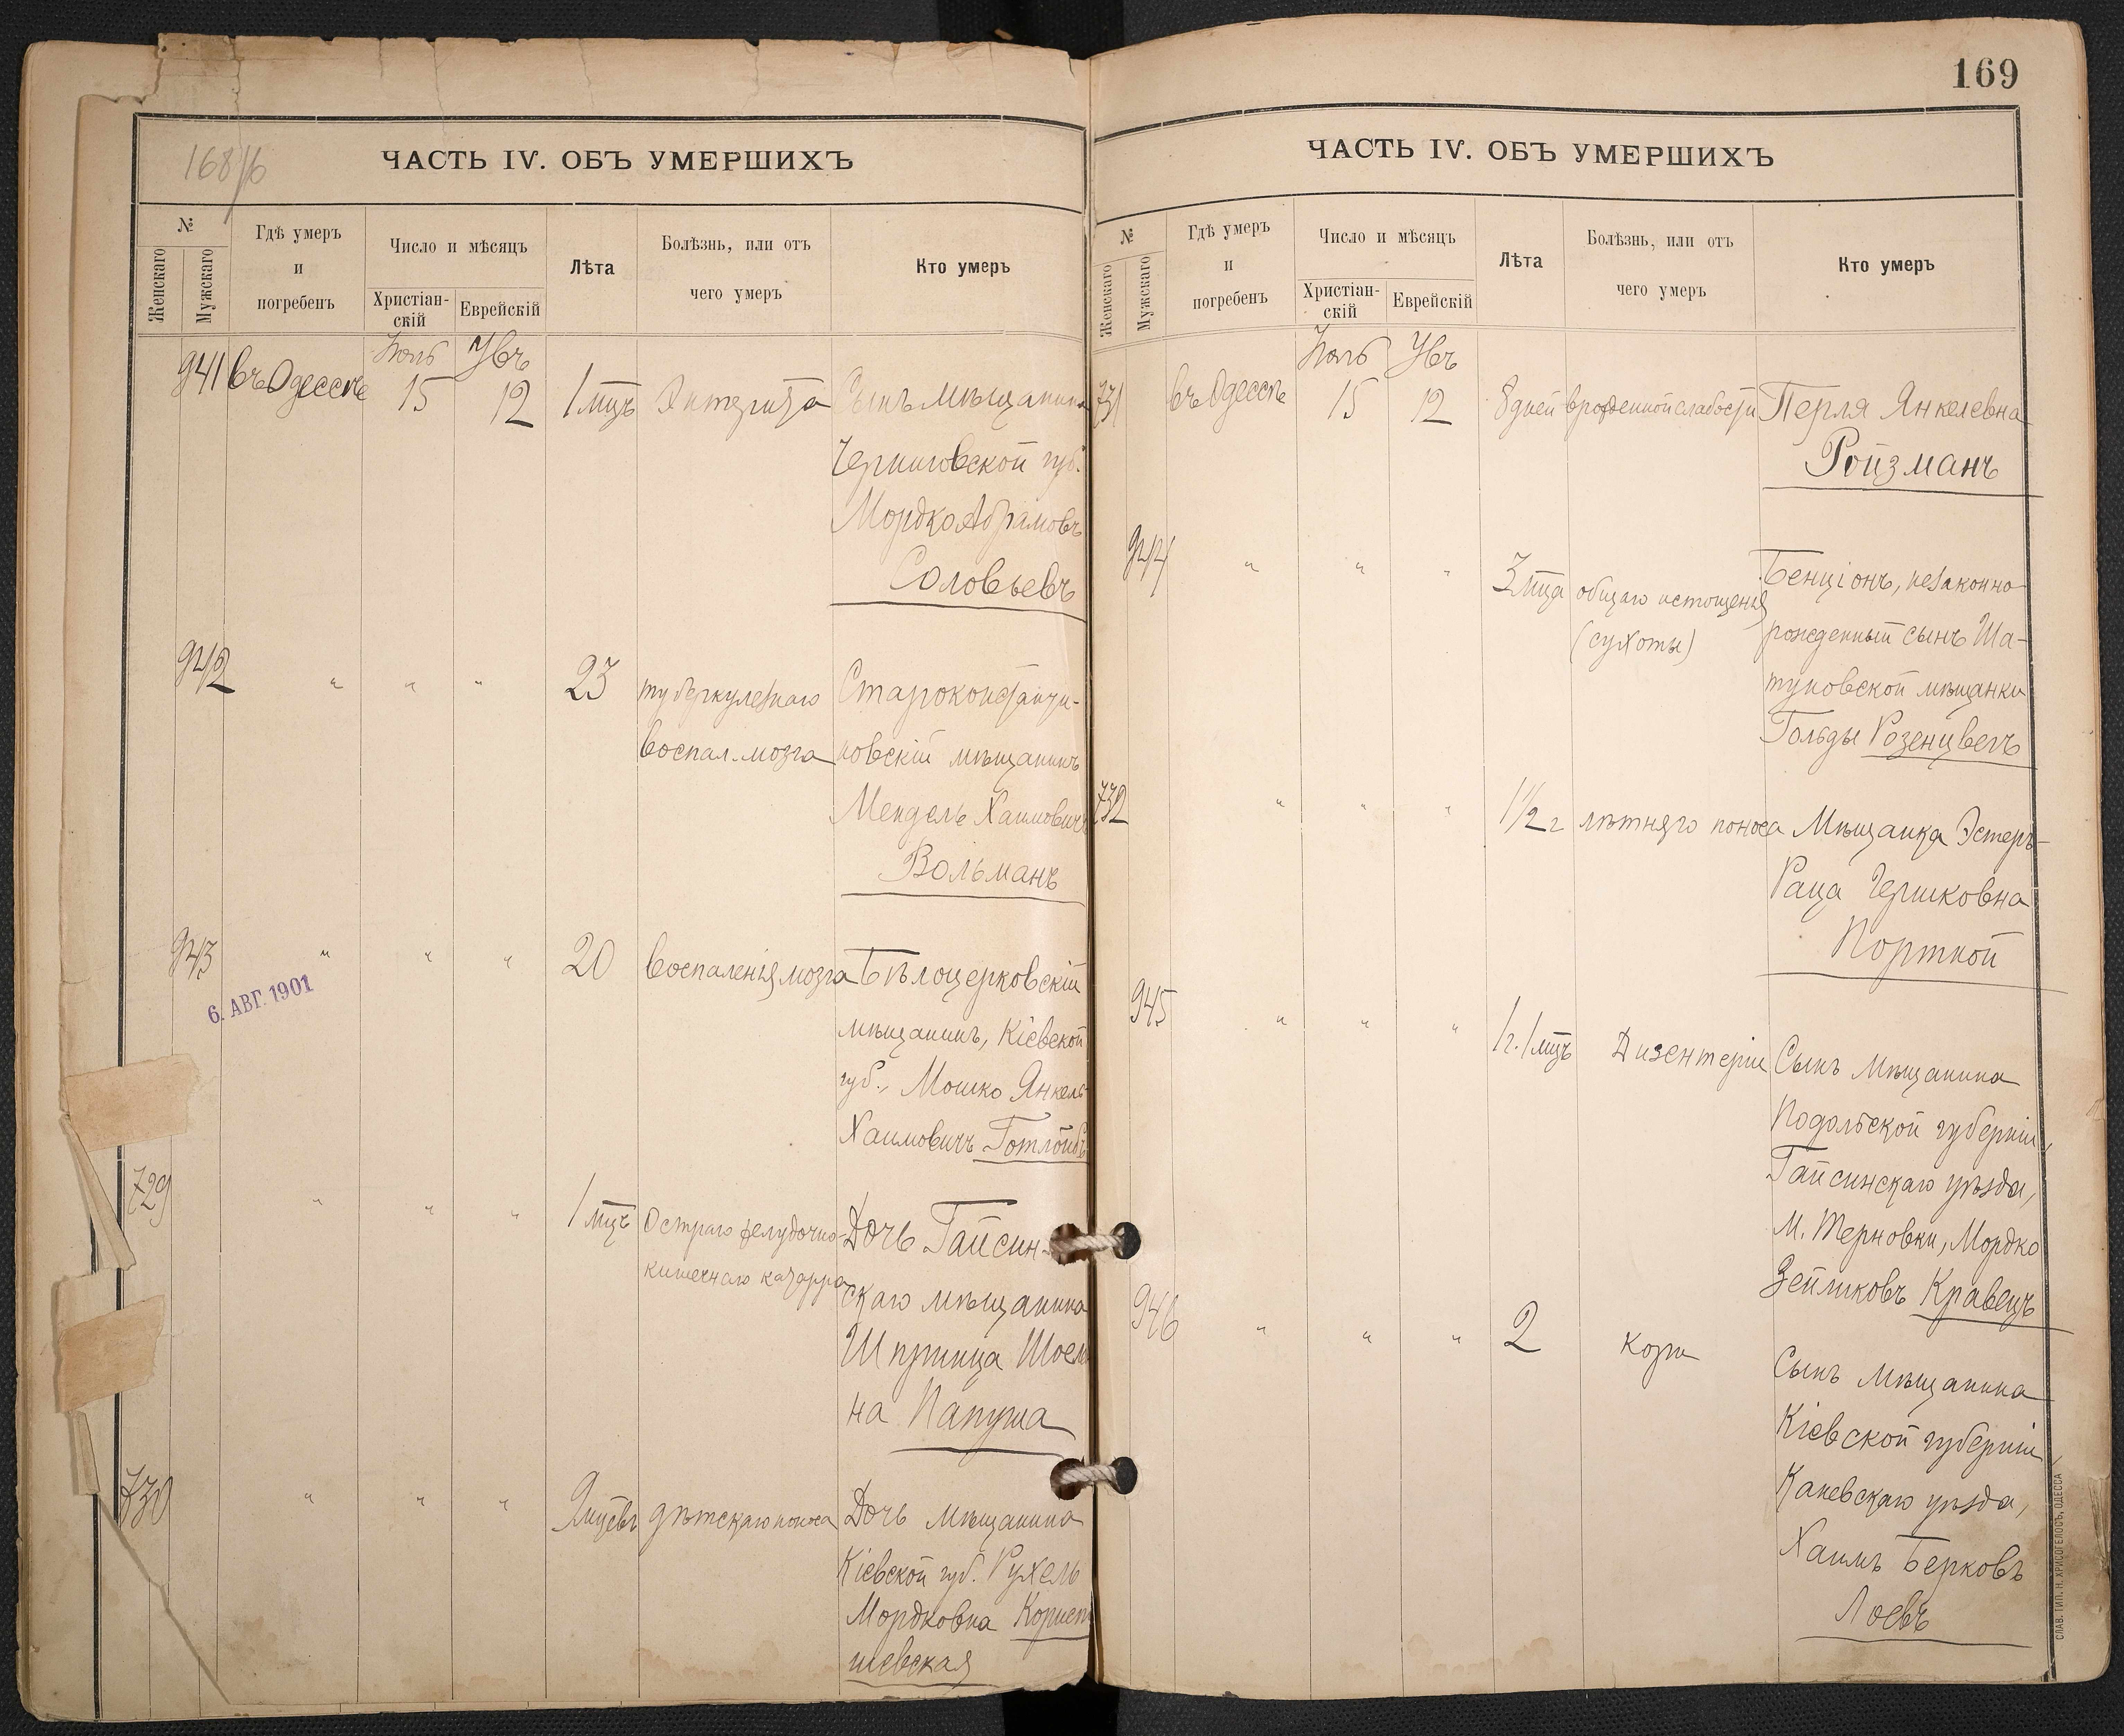 168/б
ЧАСТЬ IV. ОБЪ УМЕРШИХЪ
№
Женскаго
Мужскаго
Гдѣ умеръ
и
погребенъ
Число и мѣсяцъ
Христіан-
скій
Еврейскій
Лѣта
Болѣзнь, или отъ
чего умеръ
Кто умеръ
Іюль Увъ
941 въ Одессѣ 15 12 1 мцъ Энтерита Сынъ мѣщанина
Черниговской губ.
Мордко Абрамовъ
Соловьевъ
942 " " " 23 туберкулезнаго Староконстанти-
воспал. мозга новскій мѣщанинъ
Мендель Хаимовичъ
Вольманъ
943 " " " 20 воспаленія мозга Бѣлоцерковскій
6. АВГ. 1901
мѣщанинъ, Кіевской
губ., Мошко Янкель
Хаимовичъ Готлойбъ
729 " " " 1 мцъ Остраго желудочно- Дочь Гайсин-
кишечнаго катарра скаго мѣщанина
Шпринца Шоел
на Папуша
730 " " " 9 мцевъ дѣтскаго поноса Дочь мѣщанина
Кіевской губ. Рухель
Мордковна Корнет
шевская
169
ЧАСТЬ IV. ОБЪ УМЕРШИХЪ
№
Женскаго
Мужскаго
Гдѣ умеръ
и
погребенъ
Число и мѣсяцъ
Христіан-
скій
Еврейскій
Лѣта
Болѣзнь, или отъ
чего умеръ
Кто умеръ
Іюль Увъ
731 въ Одессѣ 15 12 8 дней врожденной слабости Перля Янкелевна
Ройзманъ
944 " " " 3 мца общаго истощенія Бенціонъ, незаконно
(сухоты) рожденный сынъ Ша-
туновской мѣщанки
Гольды Розенцвегъ
732 " " " 1 1/2 г лѣтняго поноса Мѣщанка Эстеръ-
Раца Гершковна
Портной
945 " " " 1 г. 1 мцъ Дизентеріи Сынъ мѣщанина
Подольской губерніи,
Гайсинскаго уѣзда,
М. Терновки, Мордко
Зейликовъ Кравецъ
946 " " " 2 кори Сынъ мѣщанина
Кіевской губерніи
Каневскаго уѣзда,
Хаимъ Берковъ
Лоевъ
СЛАВ. ТИП. Н. ХРИСОГЕЛОСЪ, ОДЕССА